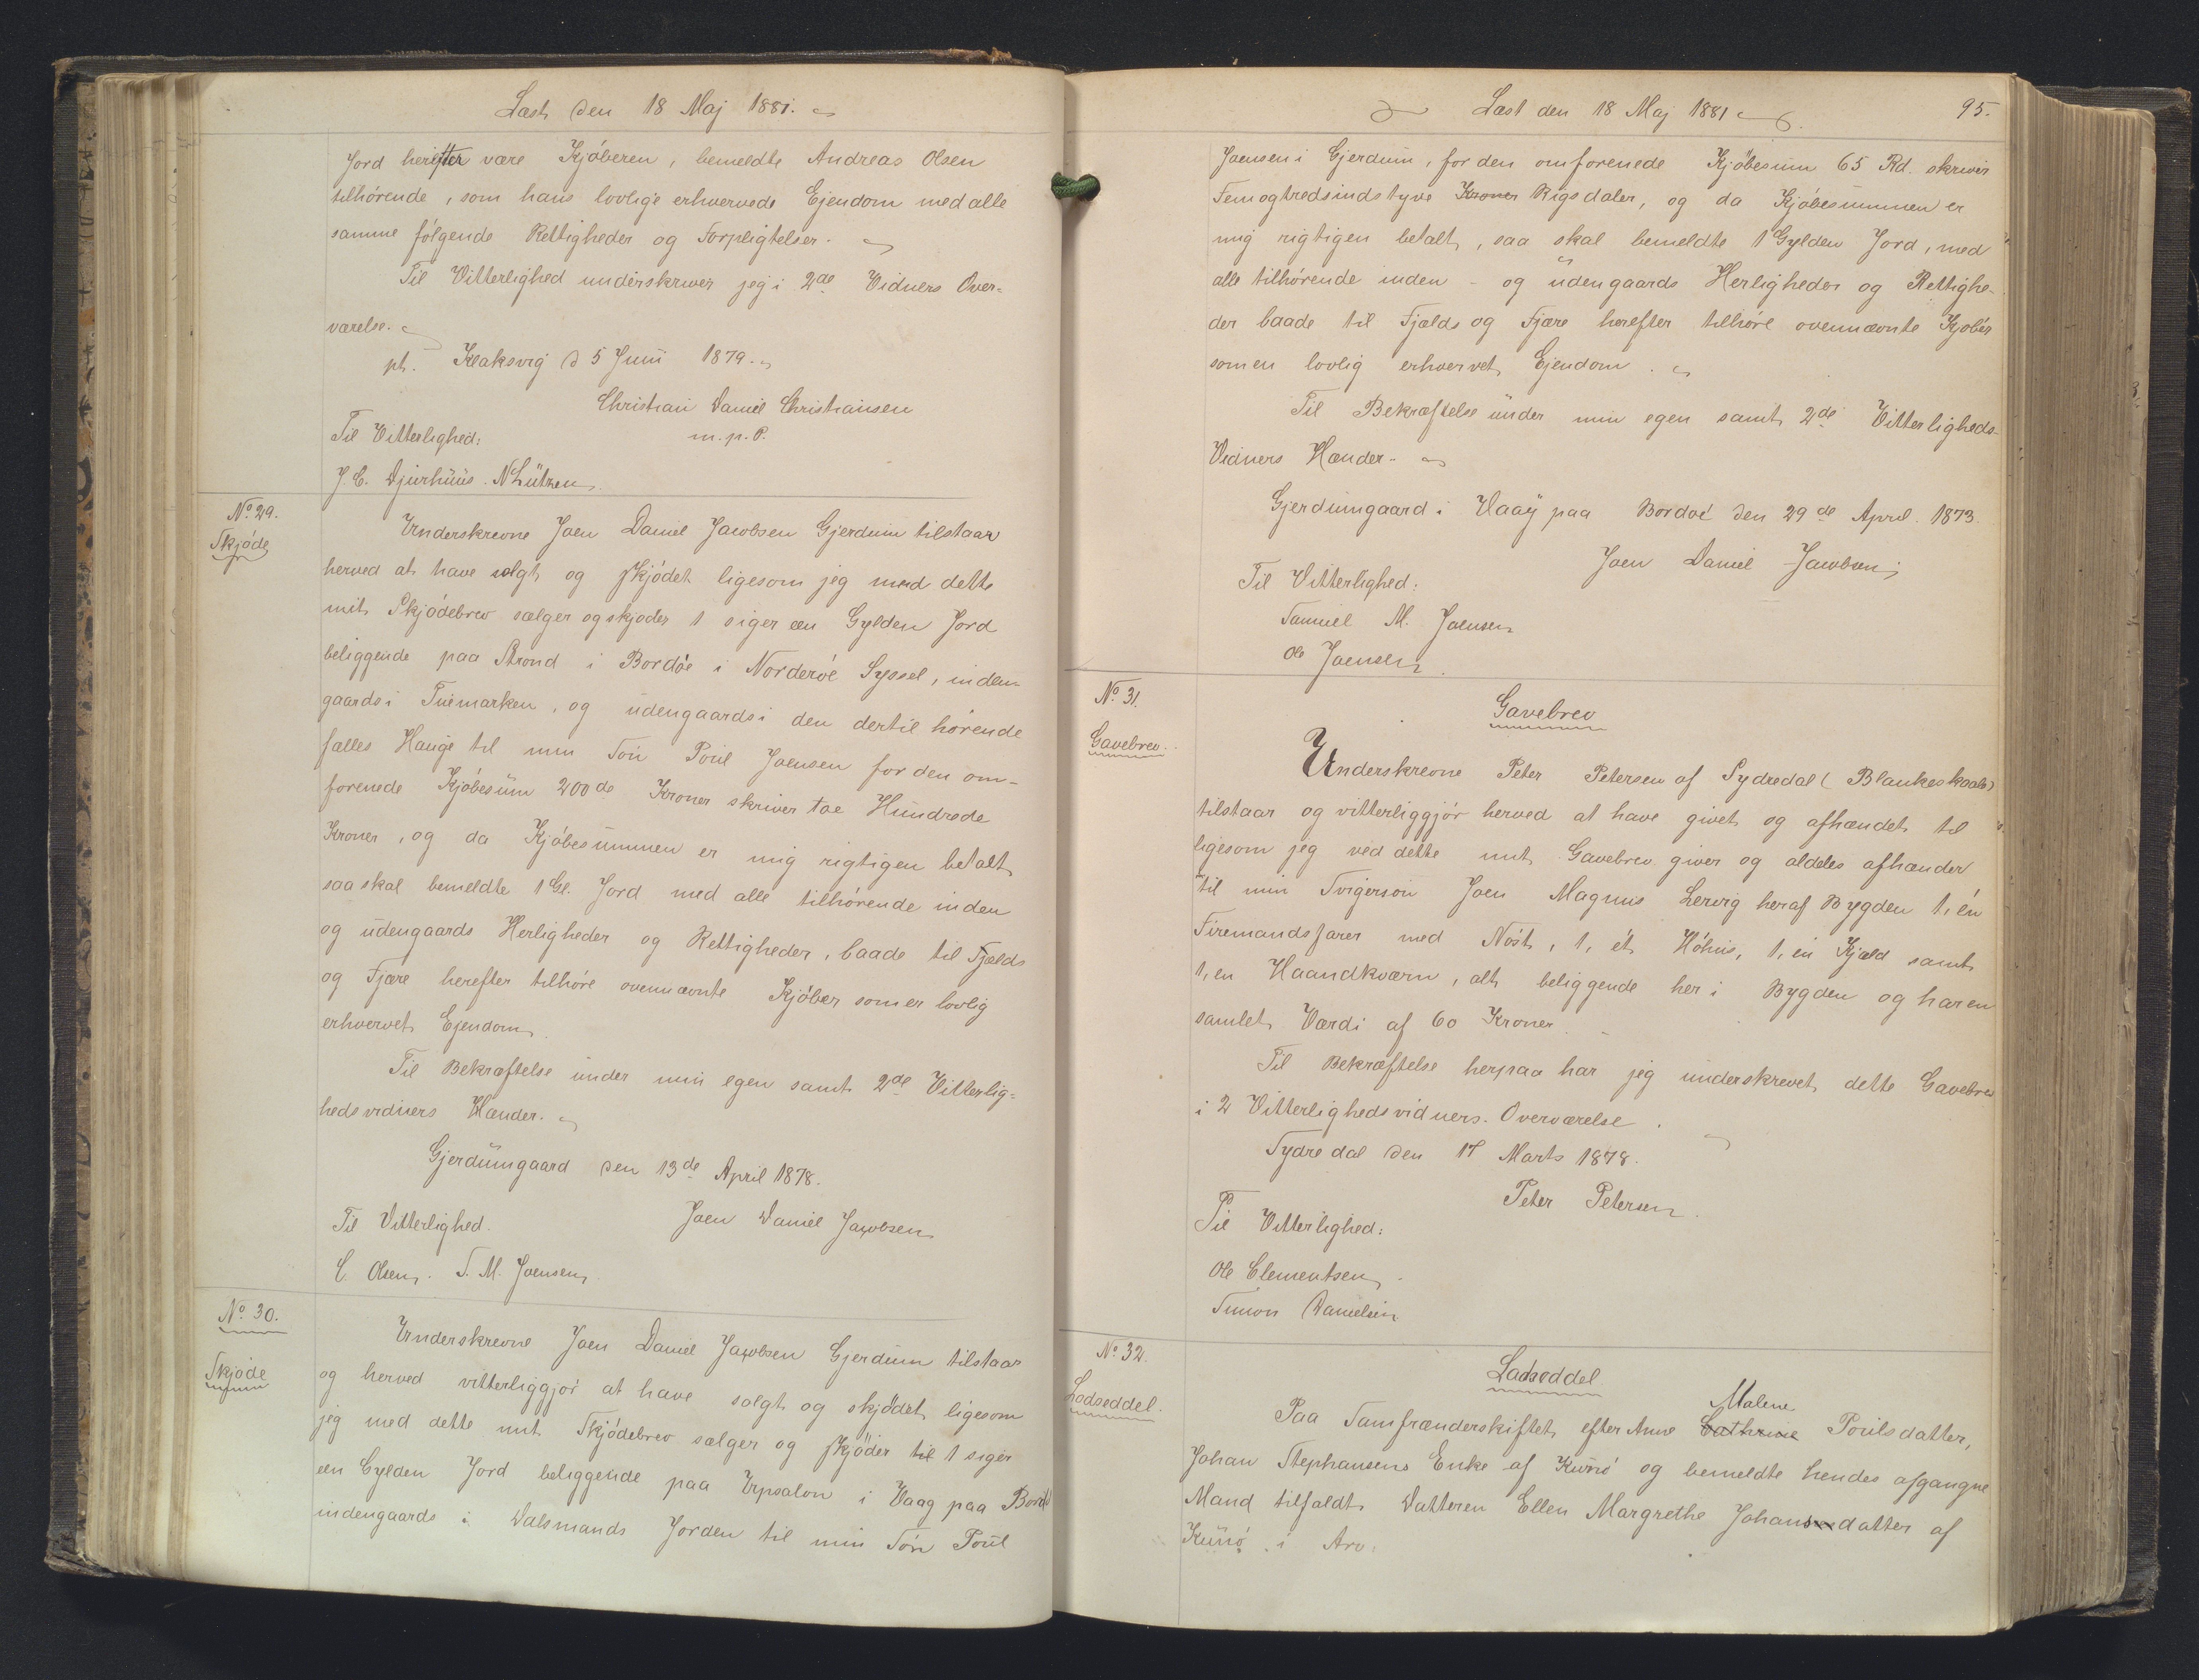 Læst den 18 Maj 1881.
Jord herefter være Kjøberen, bemeldte Andreas Olsen
tilhørende, som hans lovlige erhvervede Ejendom med alle
samme følgende Rettigheder og Forpligtelser.
Til Vitterlighed underskriver jeg i 2de Vidners Over-
værelse.
pt. Klaksvig d 5 Juni 1879.
Christian Daniel Christiansen
Til Vitterlighed: m.p.P.
J. C. Djurhuus. N Lützen
No 29.
Skjøde
Underskrevne Joen Daniel Jacobsen Gjerdum tilstaar
herved at have solgt og skjødet ligesom jeg med dette
mit Skjødebrev sælger og skjøder 1 siger een Gylden Jord
beliggende paa Strond i Bordøe i Norderøe Syssel, inden-
gaards i Tuemarken, og udengaards i den dertil hørende
fælles Hauge til min Søn Poul Joensen for den om-
forenede Kjøbesum 200de Kroner skriver toe Hundrede
Kroner, og da Kjøbesummen er mig rigtigen betalt
saa skal bemeldte 1 Gl. Jord med alle tilhørende inden
og udengaards Herligheder og Rettigheder, baade til Fjelds
og Fjære herefter tilhøre ovennævnte Kjøber som er lovlig
erhvervet Ejendom
Til Bekræftelse under min egen samt 2de Vitterlig-
hedsvidners Hænder.
Gjerdumgaard den 13de April 1878.
Til Vitterlighed. Joen Daniel Jacobsen
C. Olsen. S. M. Joensen
No 30.
Skjøde
Underskrevne Joen Daniel Jacobsen Gjerdum tilstaar
og herved vitterliggjør at have solgt og skjødet ligesom
jeg med dette mit Skjødebrev sælger og skjøder til 1 siger
een Gylden Jord beliggende paa Upsalon i Vaag paa Bordø
indengaards i Dalsmands Jorden til min Søn Poul
Læst den 18 Maj 1881
95.
Joensen i Gjerdum, for den omforenede Kjøbesum 65 Rd. skriver
Femogtredsindstyve Kroner Rigsdaler, og da Kjøbesummen er
mig rigtigen betalt, saa skal bemeldte 1 Gylden Jord, med
alle tilhørende inden- og udengaards Herligheder og Rettighe-
der baade til Fjælds og Fjære herefter tilhøre ovennævnte Kjøber
som en lovlig erhvervet Ejendom.
Til Bekræftelse under min egen samt 2de Vitterligheds-
Vidners Hænder.
Gjerdumgaard i Vaag paa Bordøe den 29de April 1873.
Joen Daniel Jacobsen
Til Vitterlighed:
Samuel M. Joensen
Ole Joensen
No 31.
Gavebrev.
Gavebrev
Underskrevne Peter Petersen af Sydredal (Blankeskaale)
tilstaar og vitterliggjør herved at have givet og afhændet til
ligesom jeg ved dette mit Gavebrev giver og aldeles afhænder
til min Svigersøn Joen Magnus Lervig heraf Bygden 1, én
Firemandsfarer med Nøst, 1, ét Høhus, 1, én Kjæld samt
1, en Haandkværn, alt beliggende her i Bygden og har en
samlet Værdi af 60 Kroner.
Til Bekræftelse herpaa har jeg underskrevet dette Gavebrev
i 2 Vitterlighedsvidners. Overværelse.
Sydredal den 17 Marts 1878.
Peter Petersen.
Til Vitterlighed:
Ole Clementsen
Simon Danielsen
No 32.
Lodseddel.
Lodseddel
Malene
Paa Samfrænderskiftet efter Anne Cathrine Poulsdatter,
Johan Stephansens Enke af Kunø og bemeldte hendes afgangne
Mand tilfaldt Datteren Ellen Margrethe Johansdatter af
Kunø i Arv.